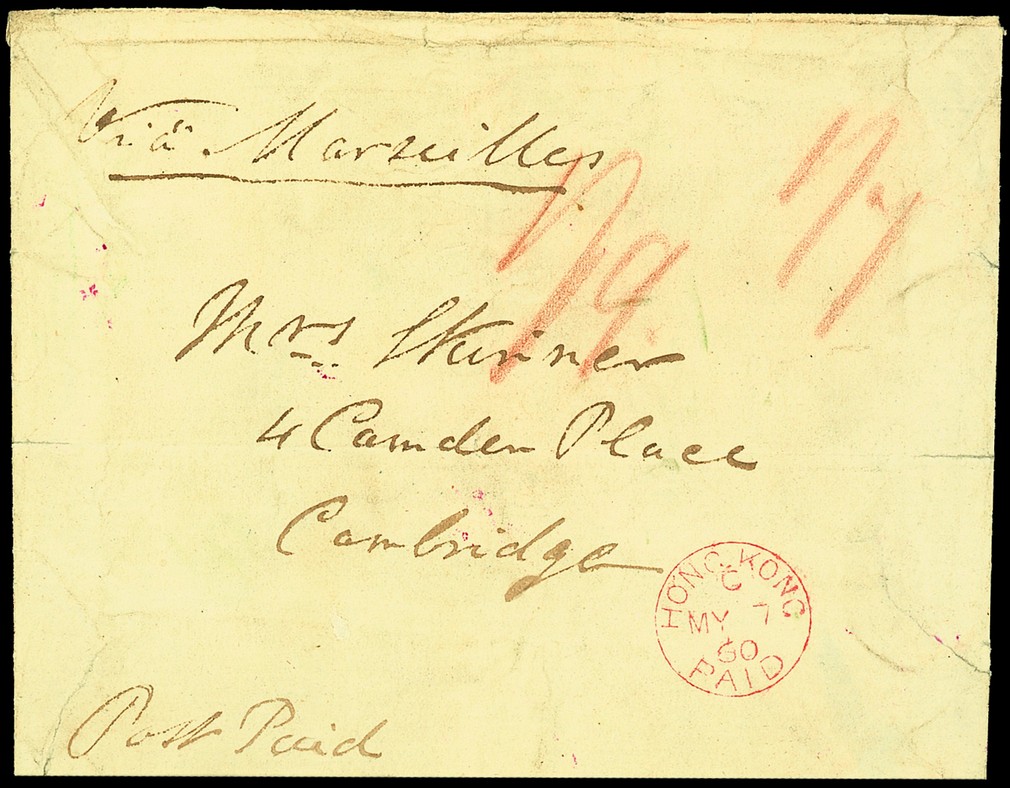 Viâ Marseilles
1/9
1/7
Mrs Skinner
4 Camden Place
Cambridge
HONG KONG
C
MY 7
60
PAID
Post Paid